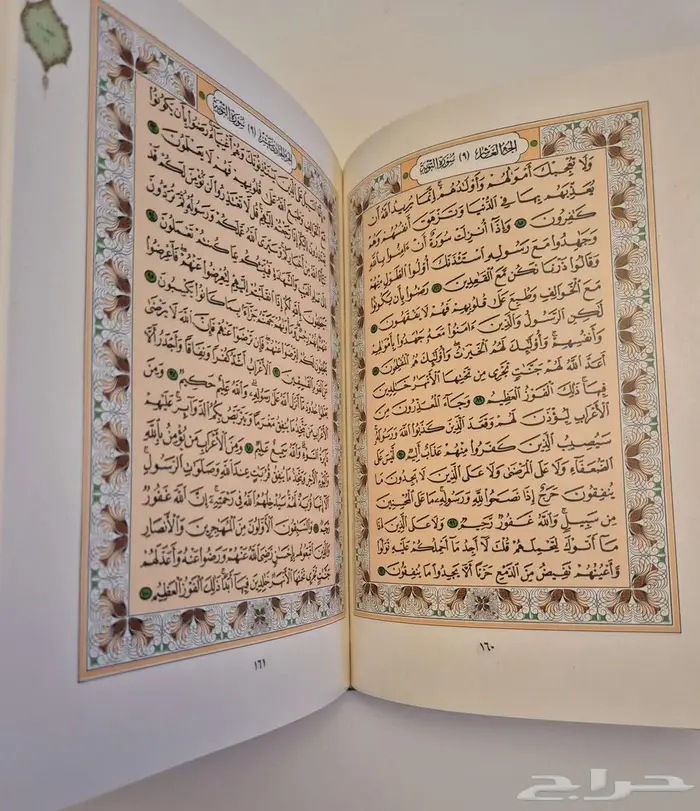 الجزء العاشر (٩) سورة التوبة
وَلَا تُعْجِبْكَ أَمْوَٰلُهُمْ وَأَوْلَٰدُهُمْ إِنَّمَا يُرِيدُ اللَّهُ أَن
يُعَذِّبَهُم بِهَا فِي الدُّنْيَا وَتَزْهَقَ أَنفُسُهُمْ وَهُمْ
كَٰفِرُونَ ٨٥ وَإِذَا أُنزِلَتْ سُورَةٌ أَنْ ءَامِنُوا بِاللَّهِ
وَجَٰهِدُوا مَعَ رَسُولِهِ اسْتَـْٔذَنَكَ أُولُوا الطَّوْلِ مِنْهُمْ
وَقَالُوا ذَرْنَا نَكُن مَّعَ الْقَٰعِدِينَ ٨٦ رَضُوا بِأَن يَكُونُوا
مَعَ الْخَوَالِفِ وَطُبِعَ عَلَىٰ قُلُوبِهِمْ فَهُمْ لَا يَفْقَهُونَ ٨٧
لَٰكِنِ الرَّسُولُ وَالَّذِينَ ءَامَنُوا مَعَهُ جَٰهَدُوا بِأَمْوَٰلِهِمْ
وَأَنفُسِهِمْ وَأُولَٰئِكَ لَهُمُ الْخَيْرَٰتُ وَأُولَٰئِكَ هُمُ الْمُفْلِحُونَ ٨٨
أَعَدَّ اللَّهُ لَهُمْ جَنَّٰتٍ تَجْرِي مِن تَحْتِهَا الْأَنْهَٰرُ خَٰلِدِينَ
فِيهَا ذَٰلِكَ الْفَوْزُ الْعَظِيمُ ٨٩ وَجَاءَ الْمُعَذِّرُونَ مِنَ
الْأَعْرَابِ لِيُؤْذَنَ لَهُمْ وَقَعَدَ الَّذِينَ كَذَبُوا اللَّهَ وَرَسُولَهُ
سَيُصِيبُ الَّذِينَ كَفَرُوا مِنْهُمْ عَذَابٌ أَلِيمٌ ٩٠ لَّيْسَ عَلَى
الضُّعَفَاءِ وَلَا عَلَى الْمَرْضَىٰ وَلَا عَلَى الَّذِينَ لَا يَجِدُونَ مَا
يُنفِقُونَ حَرَجٌ إِذَا نَصَحُوا لِلَّهِ وَرَسُولِهِ مَا عَلَى الْمُحْسِنِينَ
مِن سَبِيلٍ وَاللَّهُ غَفُورٌ رَّحِيمٌ ٩١ وَلَا عَلَى الَّذِينَ إِذَا
مَا أَتَوْكَ لِتَحْمِلَهُمْ قُلْتَ لَا أَجِدُ مَا أَحْمِلُكُمْ عَلَيْهِ تَوَلَّوا
وَّأَعْيُنُهُمْ تَفِيضُ مِنَ الدَّمْعِ حَزَنًا أَلَّا يَجِدُوا مَا يُنفِقُونَ ٩٢
١٦٠
الجزء الحادي عشر (٩) سورة التوبة
إِنَّمَا السَّبِيلُ عَلَى الَّذِينَ يَسْتَـْٔذِنُونَكَ وَهُمْ أَغْنِيَاءُ رَضُوا بِأَن يَكُونُوا
مَعَ الْخَوَالِفِ وَطَبَعَ اللَّهُ عَلَىٰ قُلُوبِهِمْ فَهُمْ لَا يَعْلَمُونَ ٩٣
يَعْتَذِرُونَ إِلَيْكُمْ إِذَا رَجَعْتُمْ إِلَيْهِمْ قُل لَّا تَعْتَذِرُوا لَن نُّؤْمِنَ لَكُمْ قَدْ
نَبَّأَنَا اللَّهُ مِنْ أَخْبَارِكُمْ وَسَيَرَى اللَّهُ عَمَلَكُمْ وَرَسُولُهُ ثُمَّ تُرَدُّونَ
إِلَىٰ عَٰلِمِ الْغَيْبِ وَالشَّهَٰدَةِ فَيُنَبِّئُكُم بِمَا كُنتُمْ تَعْمَلُونَ ٩٤
سَيَحْلِفُونَ بِاللَّهِ لَكُمْ إِذَا انقَلَبْتُمْ إِلَيْهِمْ لِتُعْرِضُوا عَنْهُمْ فَأَعْرِضُوا
عَنْهُمْ إِنَّهُمْ رِجْسٌ وَمَأْوَىٰهُمْ جَهَنَّمُ جَزَاءً بِمَا كَانُوا يَكْسِبُونَ ٩٥
يَحْلِفُونَ لَكُمْ لِتَرْضَوْا عَنْهُمْ فَإِن تَرْضَوْا عَنْهُمْ فَإِنَّ اللَّهَ لَا يَرْضَىٰ
عَنِ الْقَوْمِ الْفَٰسِقِينَ ٩٦ الْأَعْرَابُ أَشَدُّ كُفْرًا وَنِفَاقًا وَأَجْدَرُ أَلَّا
يَعْلَمُوا حُدُودَ مَا أَنزَلَ اللَّهُ عَلَىٰ رَسُولِهِ وَاللَّهُ عَلِيمٌ حَكِيمٌ ٩٧ وَمِنَ
الْأَعْرَابِ مَن يَتَّخِذُ مَا يُنفِقُ مَغْرَمًا وَيَتَرَبَّصُ بِكُمُ الدَّوَائِرَ عَلَيْهِمْ
دَائِرَةُ السَّوْءِ وَاللَّهُ سَمِيعٌ عَلِيمٌ ٩٨ وَمِنَ الْأَعْرَابِ مَن يُؤْمِنُ بِاللَّهِ
وَالْيَوْمِ الْءَاخِرِ وَيَتَّخِذُ مَا يُنفِقُ قُرُبَٰتٍ عِندَ اللَّهِ وَصَلَوَٰتِ الرَّسُولِ
أَلَا إِنَّهَا قُرْبَةٌ لَّهُمْ سَيُدْخِلُهُمُ اللَّهُ فِي رَحْمَتِهِ إِنَّ اللَّهَ غَفُورٌ
رَّحِيمٌ ٩٩ وَالسَّٰبِقُونَ الْأَوَّلُونَ مِنَ الْمُهَٰجِرِينَ وَالْأَنصَارِ
وَالَّذِينَ اتَّبَعُوهُم بِإِحْسَٰنٍ رَّضِيَ اللَّهُ عَنْهُمْ وَرَضُوا عَنْهُ وَأَعَدَّ لَهُمْ
جَنَّٰتٍ تَجْرِي تَحْتَهَا الْأَنْهَٰرُ خَٰلِدِينَ فِيهَا أَبَدًا ذَٰلِكَ الْفَوْزُ الْعَظِيمُ ١٠٠
١٦١
حراج